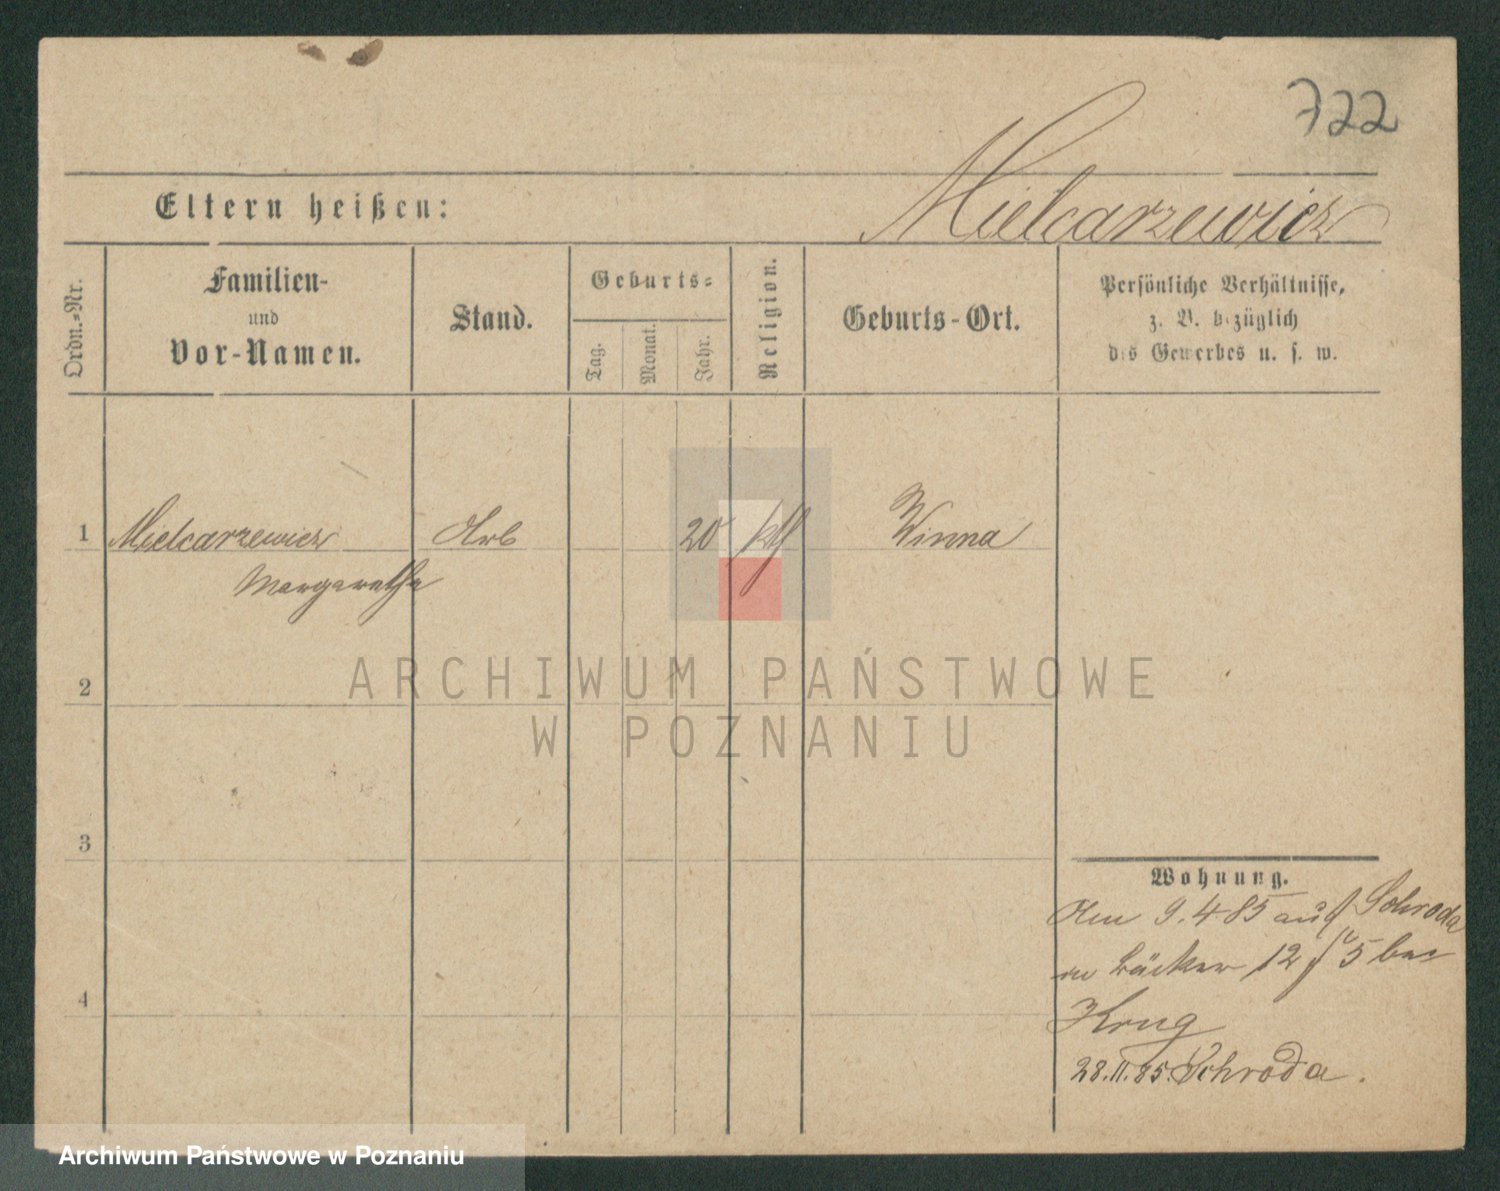 722
Mielcarzewicz
Eltern heißen:
Ordn.=Nr.
Familien-
und
Vor-Namen.
Stand.
Geburts=
Tag.
Monat.
Jahr.
Religion.
Geburts-Ort.
Persönliche Verhältnisse,
z. B. bezüglich
des Gewerbes u. s. w.
1 Mielcarzewicz Arb 20 kth Winna
Margarethe
ARCHIWUM PAŃSTWOWE
W POZNANIU
2
3
4
Wohnung.
Am 9.4 85 aus Schroda
in Bäcker 12 5 bei
Krug
28.11.85. Schroda.
Archiwum Państwowe w Poznaniu